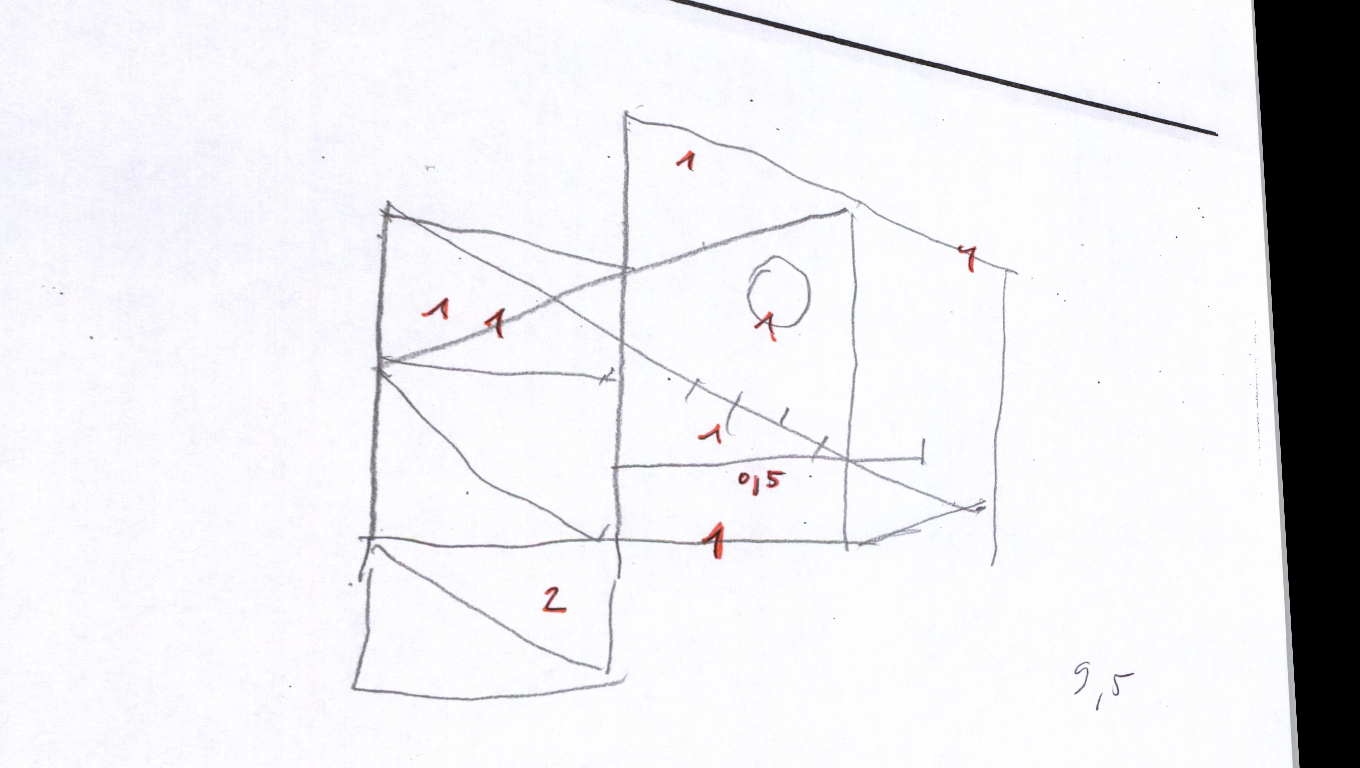 1
1
1 1
1
1
0,5
1
2
9,5